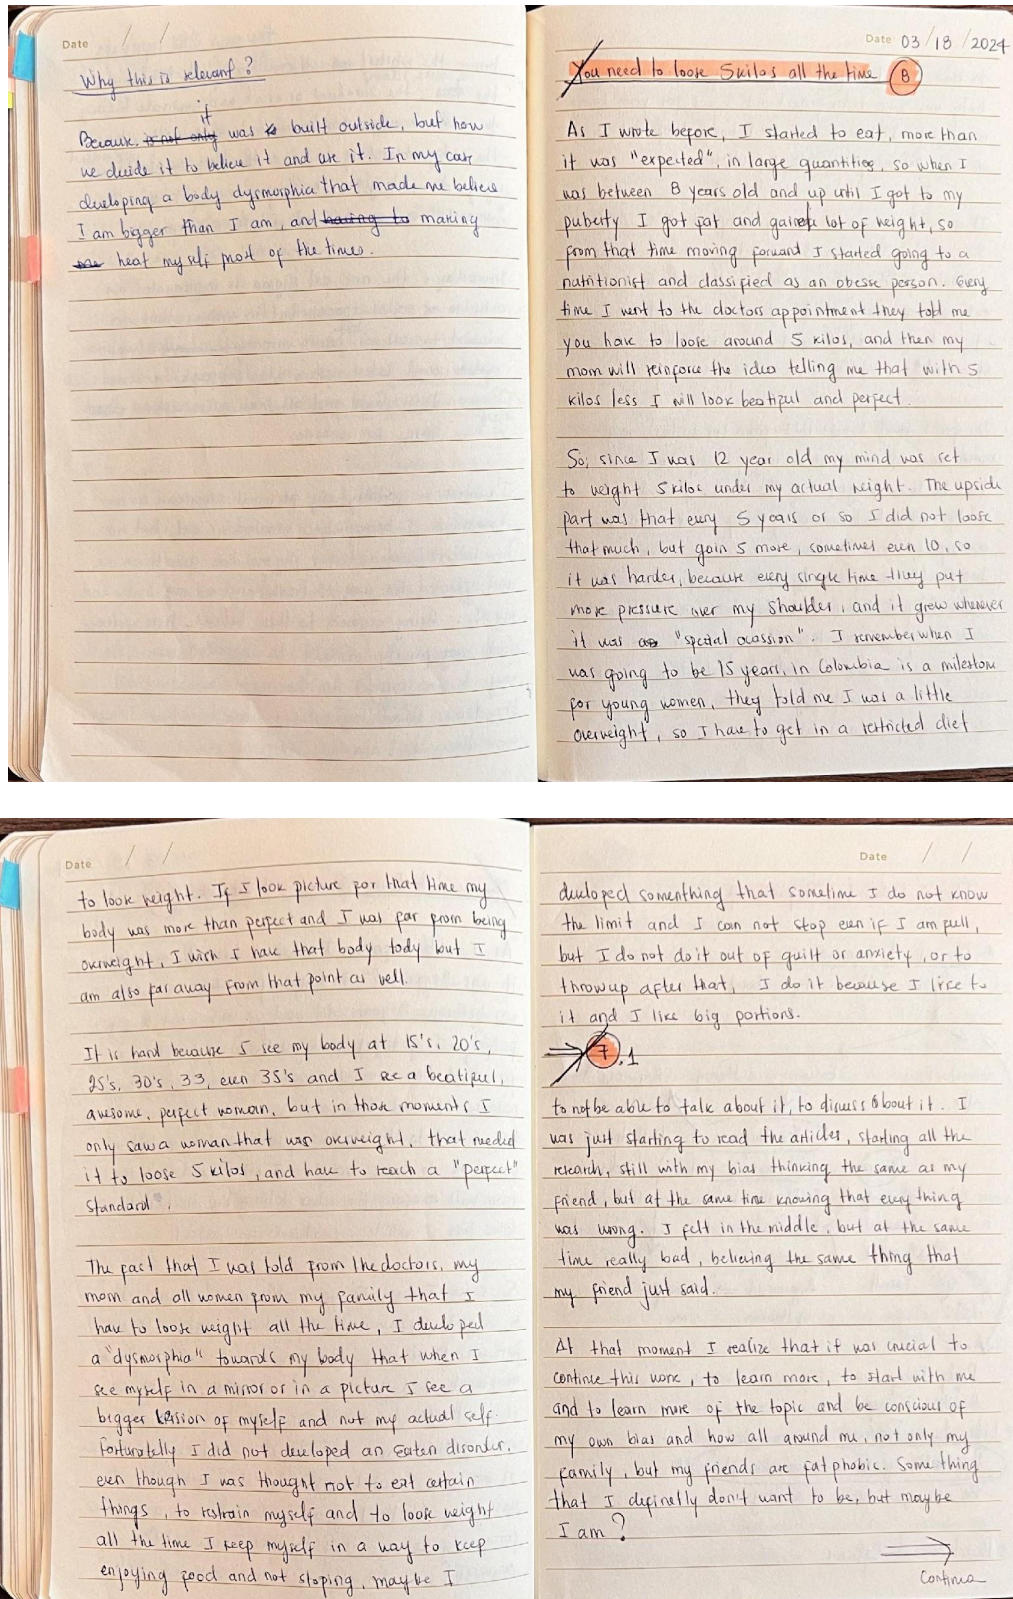 Date / /
Why this is relevant?
it
Because is not only was to built outside, but how
we decide it to believe it and use it. In my case
developing a body dysmorphia that made me believe
I am bigger than I am, and having to making
me heat myself most of the times.
Date 03/18/2024
You need to loose 5 kilos all the time 8
As I wrote before, I started to eat, more than
it was "expected", in large quantities, so when I
was between 8 years old and up until I got to my
puberty I got fat and gain a lot of weight, so
from that time moving forward I started going to a
nutritionist and classified as an obesse person. Every
time I went to the doctors appointment they told me
you have to loose around 5 kilos, and then my
mom will reinforce the idea telling me that with 5
kilos less I will look beatiful and perfect.
So, since I was 12 year old my mind was set
to weight 5 kilos under my actual weight. The upside
part was that every 5 years or so I did not loose
that much, but gain 5 more, sometimes even 10, so
it was harder, because every single time they put
more pressure over my shoulder, and it grew whenever
it was as "spetial ocassion". I remember when I
was going to be 15 years, in Colombia is a milestone
for young women, they told me I was a little
overweight, so I have to get in a restricted diet
Date / /
to loose weight. If I look picture for that time my
body was more than perfect and I was far from being
overweight, I wish I have that body tody but I
am also far away from that point as well.
It is hard because I see my body at 15's, 20's,
25's, 30's, 33, even 35's and I see a beatiful,
awesome, perfect woman, but in those moments I
only saw a woman that was overweight, that needed
it to loose 5 kilos, and have to reach a "perfect"
standard".
The fact that I was told from the doctors, my
mom and all women from my family that I
have to loose weight all the time, I developed
a "dysmorphia" towards my body that when I
see myself in a mirror or in a picture I see a
bigger version of myself and not my actual self.
Fortunatelly I did not developed an eaten disorder,
even though I was thought not to eat certain
things, to restrain myself and to loose weight
all the time I keep myself in a way to keep
enjoying food and not stoping, maybe I
Date / /
developed somenthing that sometime I do not know
the limit and I can not stop even if I am full,
but I do not do it out of guilt or anxiety, or to
throw up after that, I do it because I like to
it and I like big portions.
7.1
to not be able to talk about it, to discuss about it. I
was just starting to read the articles, starting all the
research, still with my bias thinking the same as my
friend, but at the same time knowing that everything
was wrong. I felt in the middle, but at the same
time really bad, believing the same thing that
my friend just said.
At that moment I realize that it was crucial to
continue this work, to learn more, to start with me
and to learn more of the topic and be conscious of
my own bias and how all around me, not only my
family, but my friends are fatphobic. Something
that I definelly don't want to be, but maybe
I am?
Continua